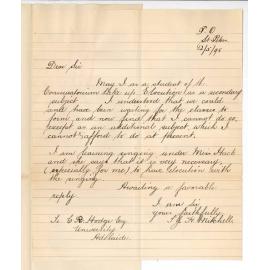 P. O
St Peters
12/5/98
Dear Sir
May I as a student of the
Conservatorium take up Elocution as a secondary
subject. I understand that we could
and have been waiting for the classes to
form, and now find that I cannot do so,
except as an additional subject, which I
cannot afford to do at present.
I am learning singing under Miss Hack
and she says that it is very necessary,
(especially for me) to have Elocution with
the singing.
Awaiting a favorable
reply.
I am Sir
yours faithfully
H. Mitchell
To C. R. Hodge Esq
University
Adelaide